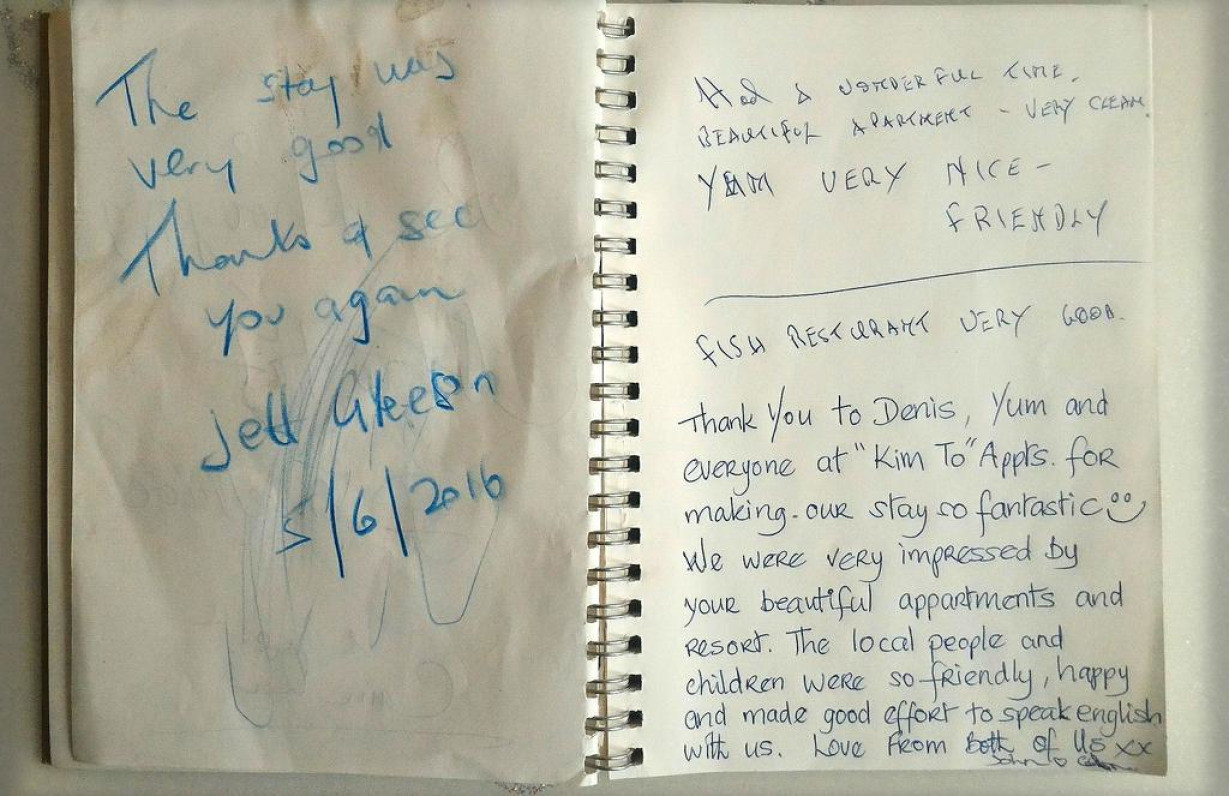 The stay was
very good
Thanks & see
you again
Jeff Gleeson
5/6/2016
Had A WONDERFUL TIME.
BEAUTIFUL APARTMENT - VERY CLEAN.
YUM VERY NICE -
FRIENDLY
FISH RESTURANT VERY GOOD.
Thank You to Denis, Yum and
everyone at "Kim To" Appts. for
making our stay so fantastic
We were very impressed by
your beautiful appartments and
resort. The local people and
children were so friendly, happy
and made good effort to speak english
with us. Love From Both of Us xx
John